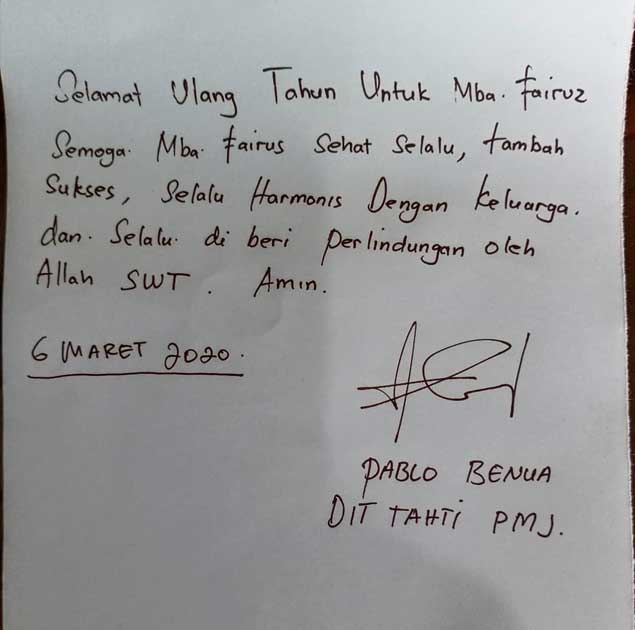 Selamat Ulang Tahun Untuk Mba. Fairuz
Semoga. Mba. Fairus Sehat Selalu, tambah
Sukses, Selalu Harmonis Dengan Keluarga.
dan. Selalu. di beri perlindungan oleh
Allah SWT. Amin.
6 MARET 2020.
PABLO BENUA
DIT TAHTI PMJ.